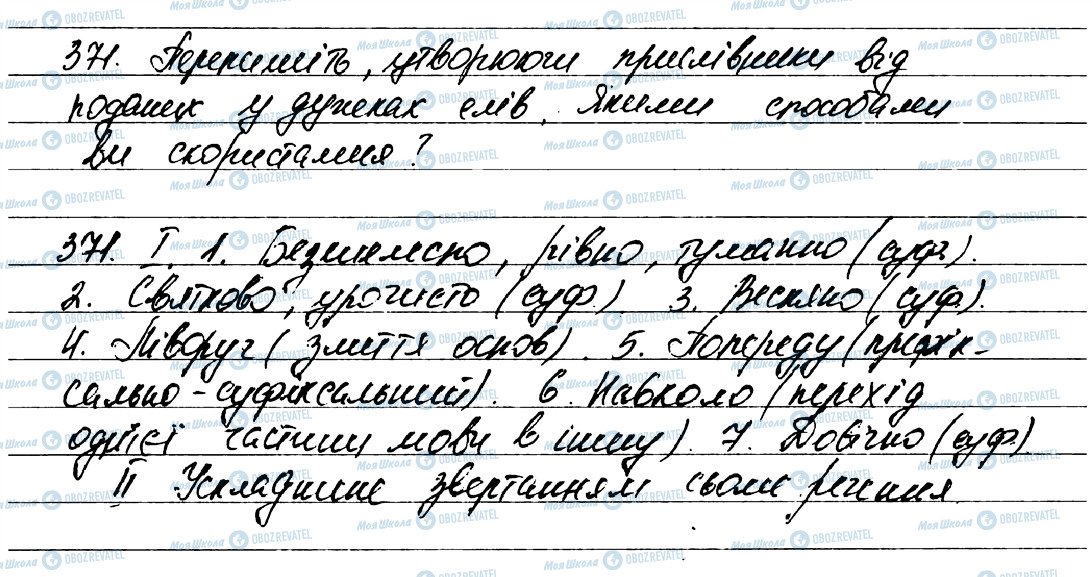 371. Перепишіть, утворюючи прислівники від
поданих у дужках слів. Якими способами
ви скористалися?
371. I. 1. Безшелесно, рівно, туманно (суф.).
2. Святково, урочисто (суф.). 3. Весняно (суф.).
4. Ліворуч (злиття основ). 5. Попереду (префік-
сально-суфіксальний). 6. Навколо (перехід
однієї частини мови в іншу). 7. Довічно (суф.).
II Ускладнине звертанням сьоме речення
Моя Школа OBOZREVATEL